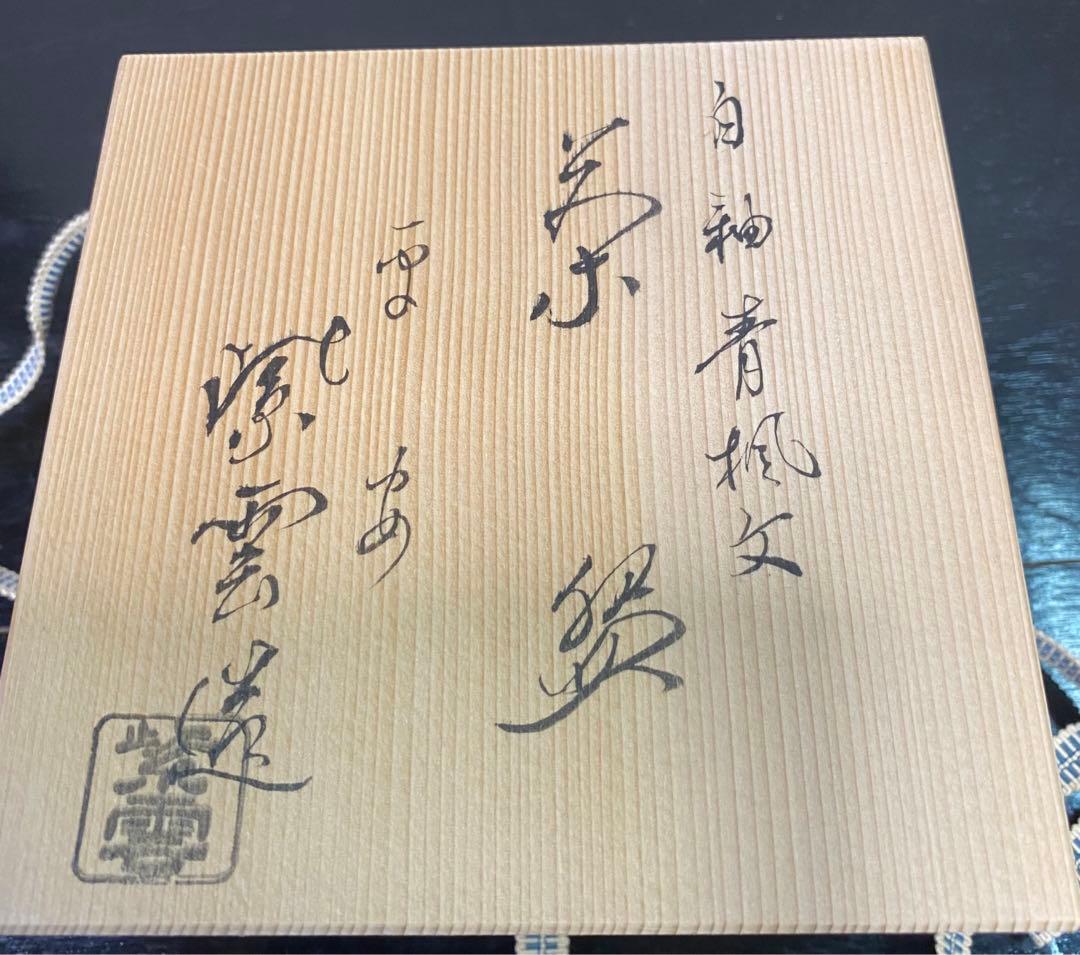 白釉青楓文
茶盌
平安
紫雲造
紫雲